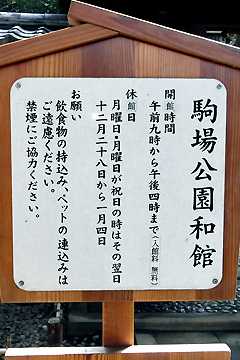 駒場公園和館
開館時間
午前九時から午後四時まで(入館料 無料)
休館日
月曜日・月曜日が祝日の時はその翌日
十二月二十八日から一月四日
お願い
飲食物の持込み、ペットの連込みは
ご遠慮ください。
禁煙にご協力ください。